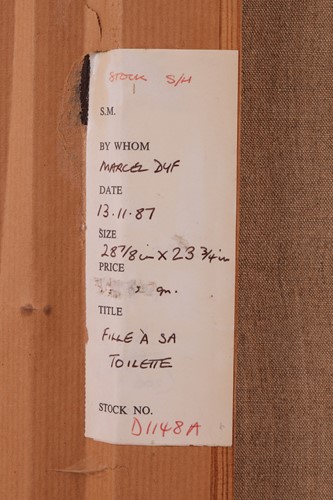 STOCK S/H
S.M.
BY WHOM
MARCEL DYF
DATE
13.11.87
SIZE
28 7/8 in x 23 3/4 in
PRICE
TITLE
FILLE À SA
TOILETTE
STOCK NO.
D1148A